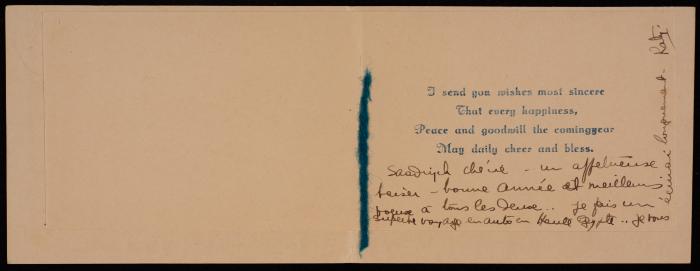 I send you wishes most sincere
That every happiness,
Peace and goodwill the coming year
May daily cheer and bless.
chérie - un affectueux
baiser - bonne année et meilleurs
voeux à tous les deux.. je fais un
superbe voyage en auto en Haute Egypte.. je vous
écrirai longuement - Katy.